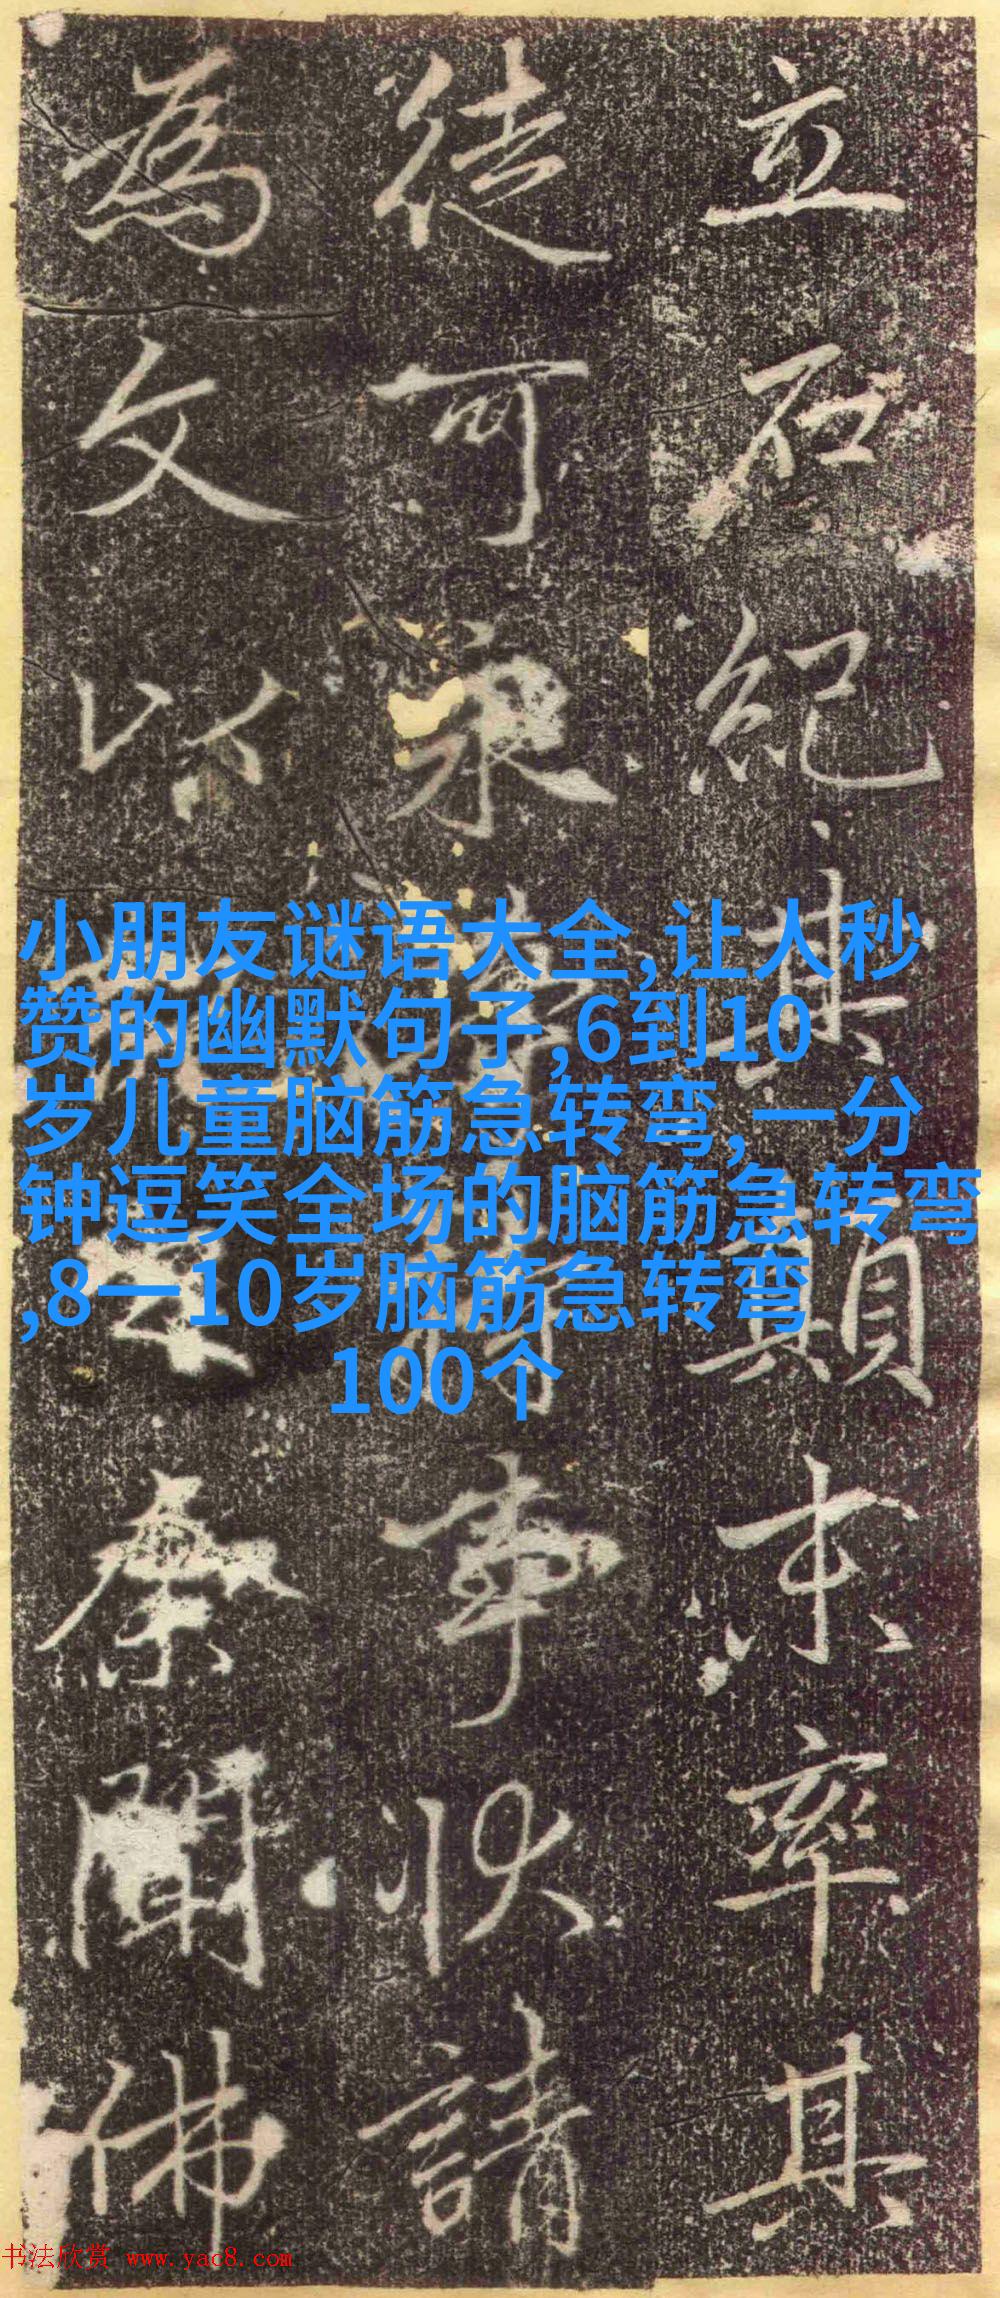 立石紀其顛末率其
徒可永事状請
為文以余聞佛
小朋友谜语大全,让人秒
赞的幽默句子,6到10
岁儿童脑筋急转弯,一分
钟逗笑全场的脑筋急转弯
,8一10岁脑筋急转弯
100个
书法欣赏 www.yac8.com